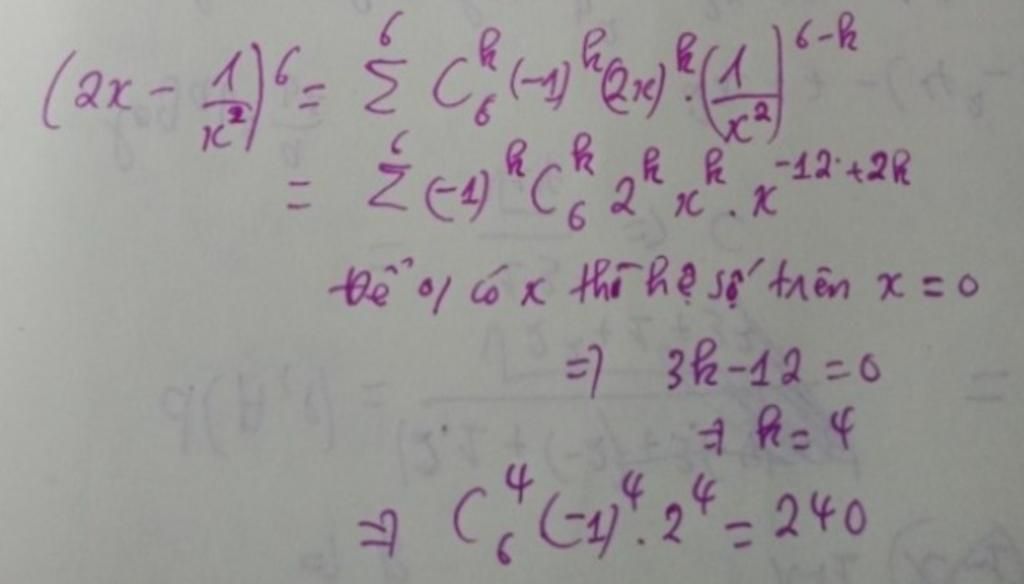 (2x - 1/x²)⁶ = Σ⁶ C₆ᵏ (-1)ᵏ (2x)ᵏ . (1/x²)⁶⁻ᵏ
= Σ⁶ (-1)ᵏ C₆ᵏ 2ᵏ xᵏ . x⁻¹²⁺²ᵏ
Để 0/ có x thì hệ số trên x = 0
=> 3k - 12 = 0
=> k = 4
=> C₆⁴ (-1)⁴ . 2⁴ = 240